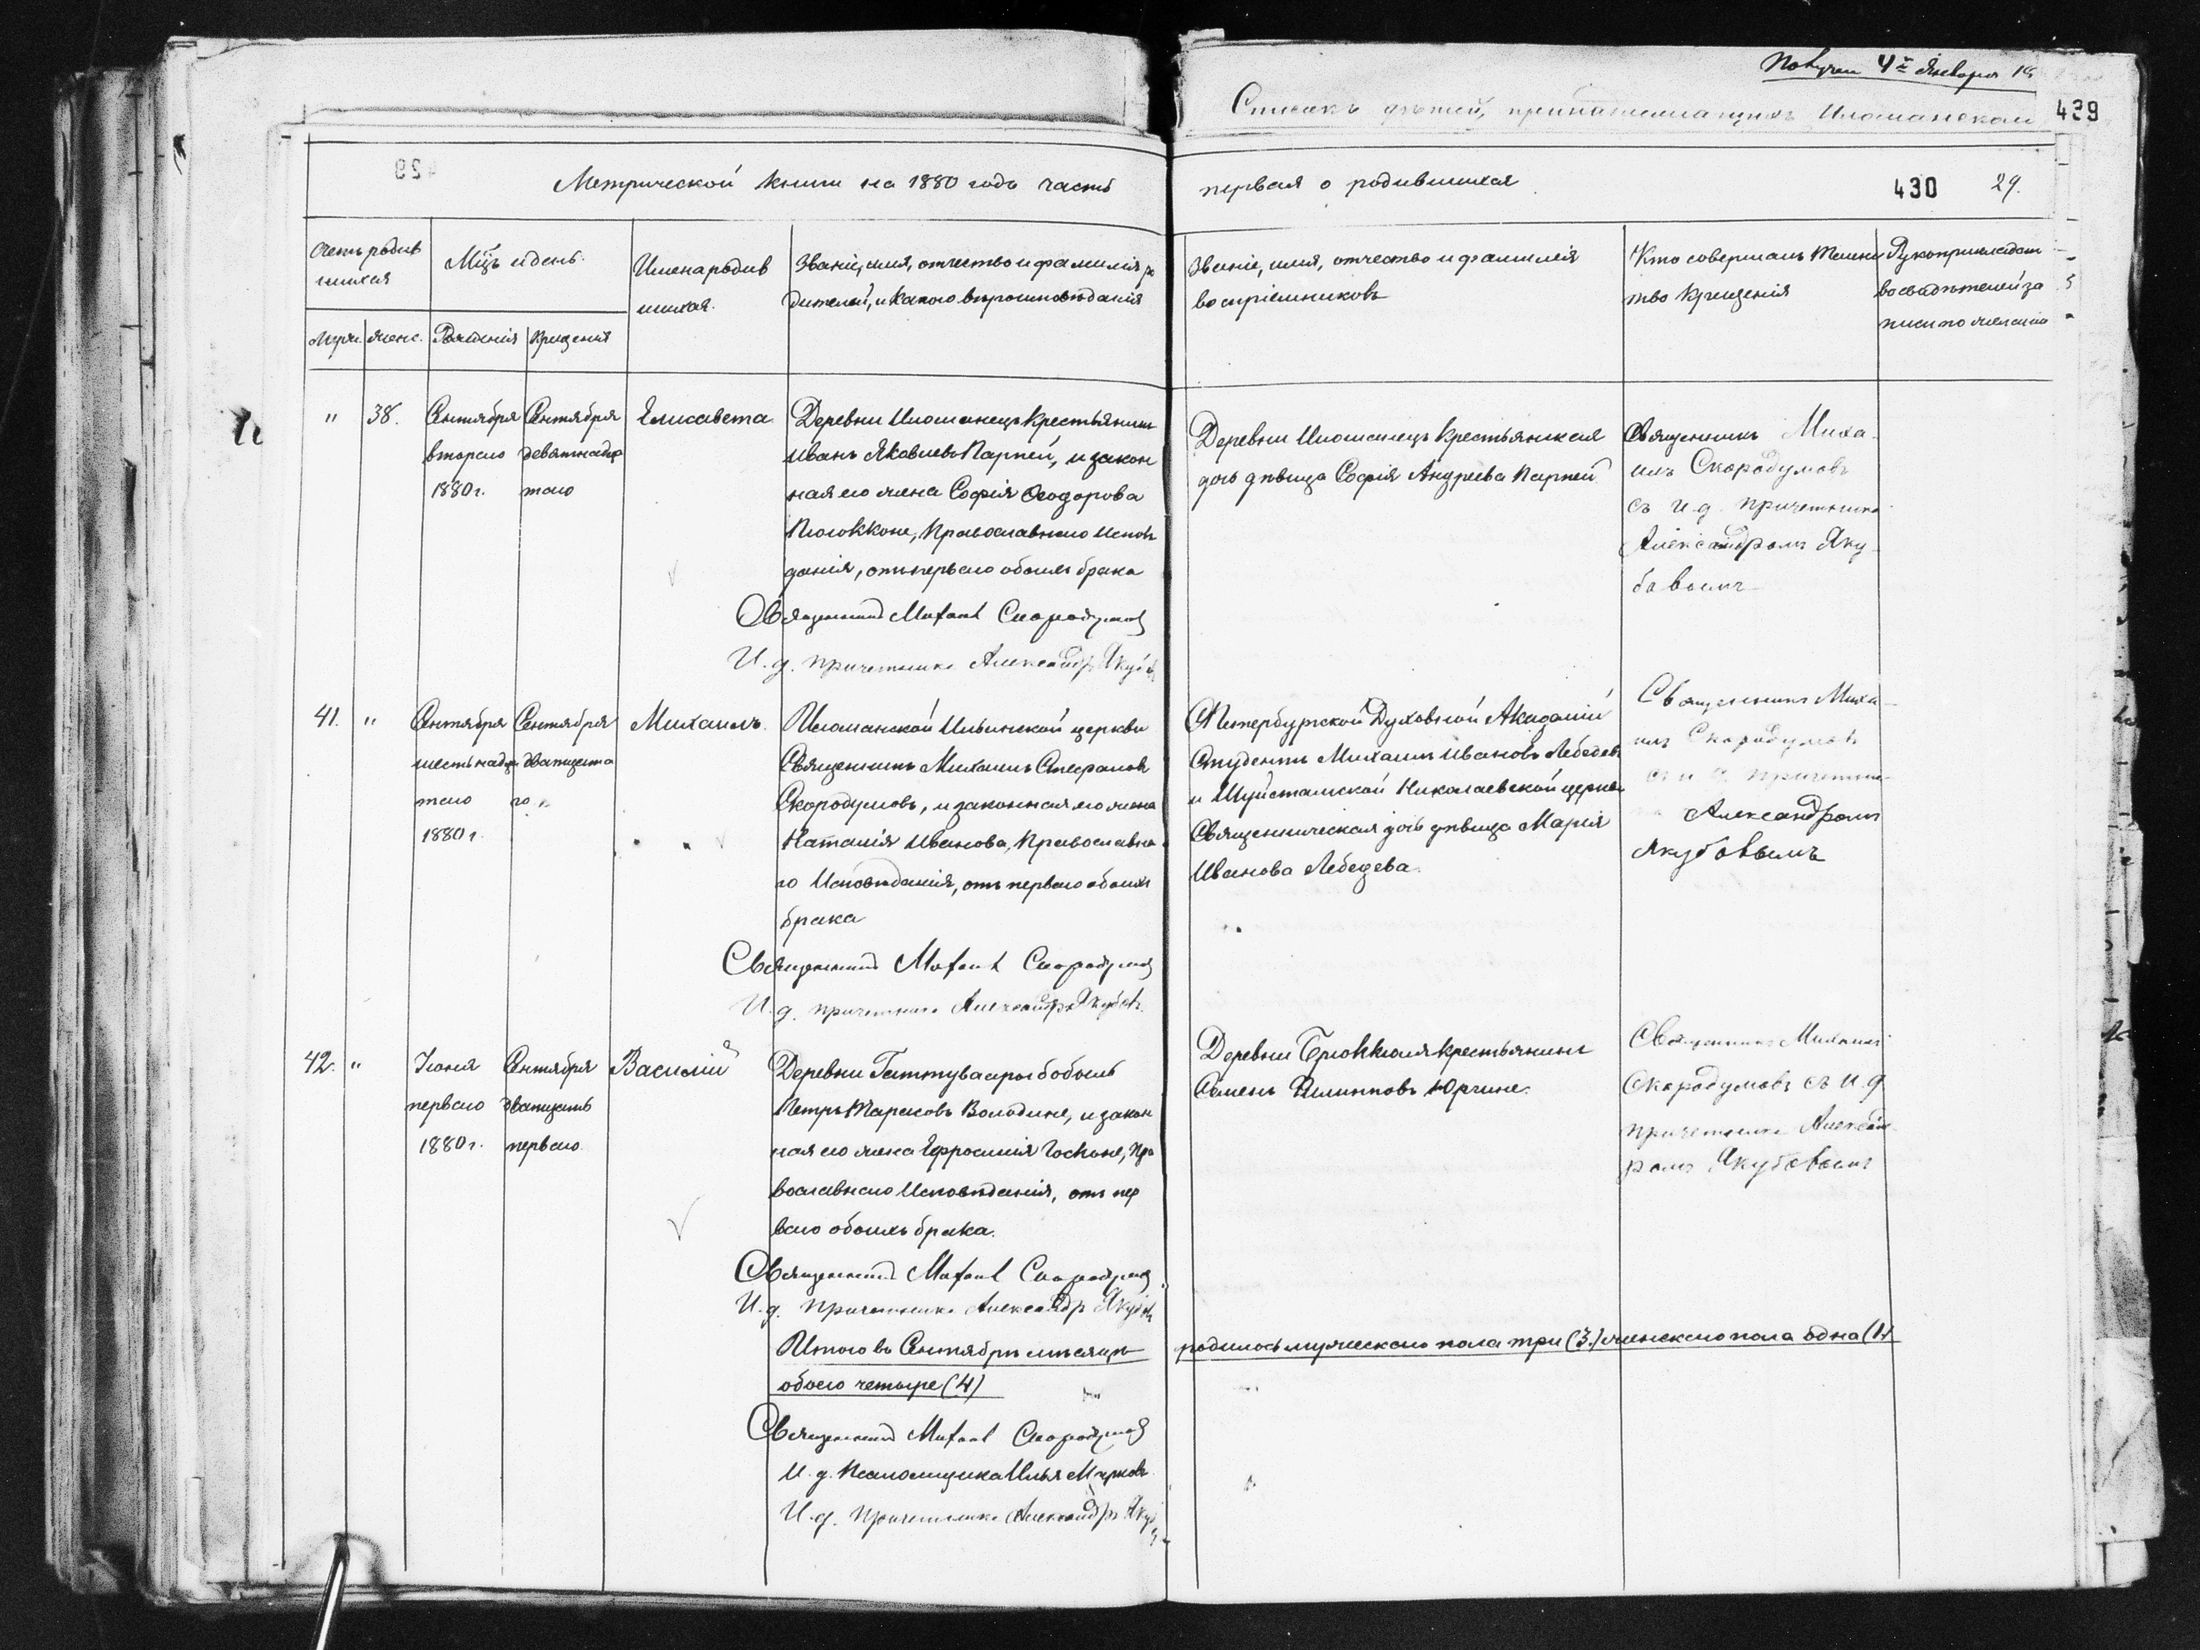 4го Января
Списокъ дѣтей,
439
Метрической книги на 1880 годъ часть первая о родившихся 430 29.
Счетъ родив
шихся
Мѣсъ и день.
Имена родив
шихся.
Званіе, имя, отчество и фамилія ро
дителей, и какого вѣроисповѣданія
Званіе, имя, отчество и фамилія
воспріемниковъ
Кто совершалъ Таинс
тво Крещенія
Рукоприкладст
во свидѣтелей за
писи по желанію
Муж. женс. Рожденія Крещенія
" 38.
Сентября
втораго
1880 г.
Сентября
девятнадца
таго
Елисавета
Деревни Иломанецъ крестьянинъ
Иванъ Яковлевъ Парней, и закон
ная его жена Софія Ѳеодорова
Православнаго Исповѣ
данія, отъ перваго обоихъ брака
Священникъ Михаилъ Скородумовъ
И. д. причетника Александръ Якубовъ
Деревни Иломанецъ крестьянская
дочь дѣвица Софія Андреева Парней
Священникъ Миха
илъ Скородумовъ
съ и. д. причетника
Александромъ Яку
бовымъ
41. "
Сентября
шестьнадца
таго
1880 г.
Сентября
двадцата
го
Михаилъ.
Иломанской Ильинской церкви
Священникъ Михаилъ Стефановъ
Скородумовъ, и законная его жена
Наталія Иванова, Православна
го Исповѣданія, отъ перваго обоихъ
брака
Священникъ Михаилъ Скородумовъ
И. д. причетника Александръ Якубовъ
СПетербургской Духовной Академіи
Студентъ Михаилъ Ивановъ Лебедевъ
и Шуйстамской Николаевской церкви
Священническая дочь дѣвица Марія
Иванова Лебедева.
Священникъ Миха
илъ Скородумовъ
съ и. д. причетни
Александромъ
Якубовымъ
42. "
Іюня
перваго
1880 г.
Сентября
двадцать
перваго
Василій
Деревни бобыль
Петръ Тарасовъ Володине, и закон
ная его жена Ефросинія Госконе, Пра
вославнаго Исповѣданія, отъ пер
ваго обоихъ брака.
Священникъ Михаилъ Скородумовъ
И. д. причетника Александръ Якубовъ
Деревни крестьянинъ
Семенъ Филипповъ Юрчине.
Священникъ Михаилъ
Скородумовъ съ и. д.
причетника Александ
ромъ Якубовымъ
Итого въ Сентябрѣ мѣсяцѣ родилось мужескаго пола три (3) женскаго пола одна (1)
обоего четыре (4)
Священникъ Михаилъ Скородумовъ
И. д. Псаломщика Илья Марковъ
И. д. Причетника Александръ Якубовъ